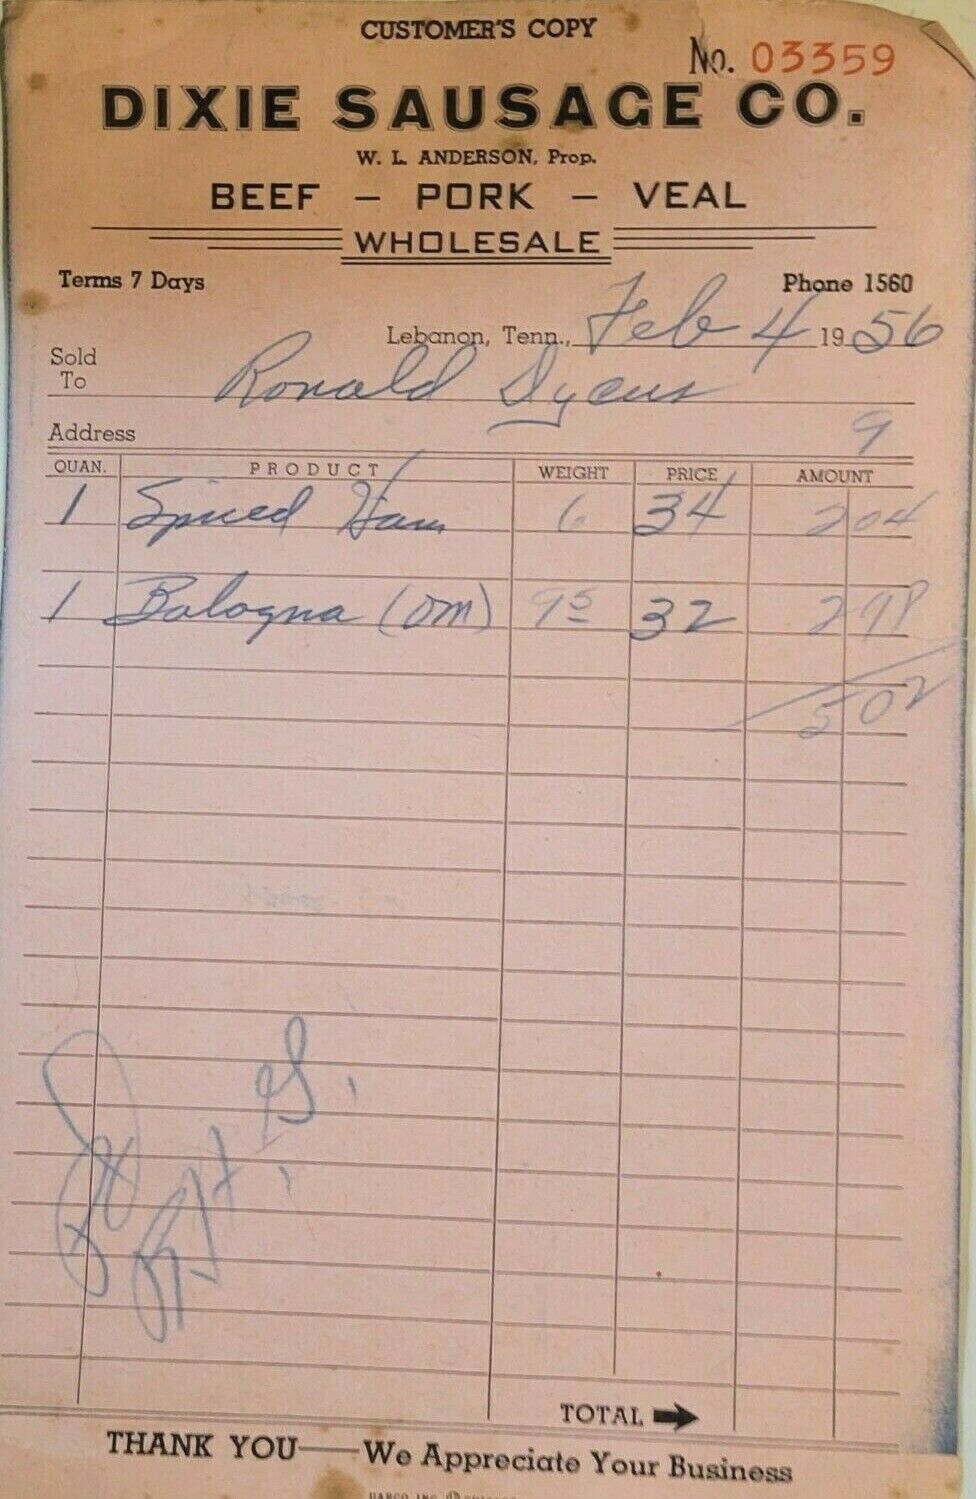 CUSTOMER'S COPY
No. 03359
DIXIE SAUSAGE CO.
W. L. ANDERSON, Prop.
BEEF — PORK — VEAL
WHOLESALE
Terms 7 Days Phone 1560
Lebanon, Tenn., Feb 4 1956
Sold To Ronald Dycus
Address 9
QUAN. PRODUCT WEIGHT PRICE AMOUNT
1 Spiced Ham 6 34 2 04
1 Bologna (OM) 9 5 32 2 98
5 02
TOTAL
THANK YOU — We Appreciate Your Business